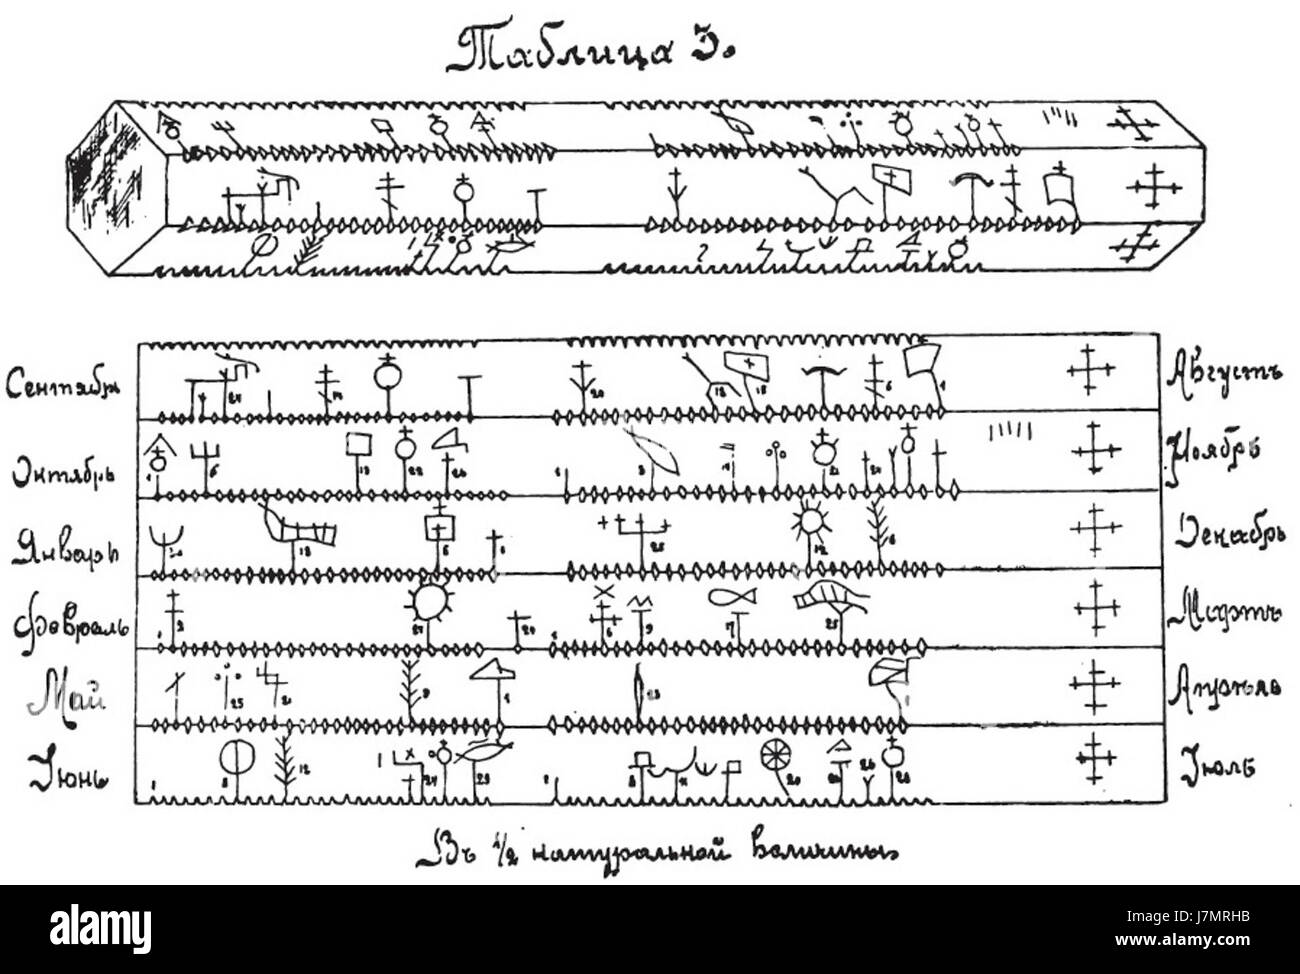 Таблица 3.
Сентябрь Августъ
Октябрь Ноябрь
Январь Декабрь
Февраль Мартъ
Май Апрѣль
Іюнь Іюль
Въ 1/2 натуральной величины
alamy
Image ID: J7MRHB
www.alamy.com